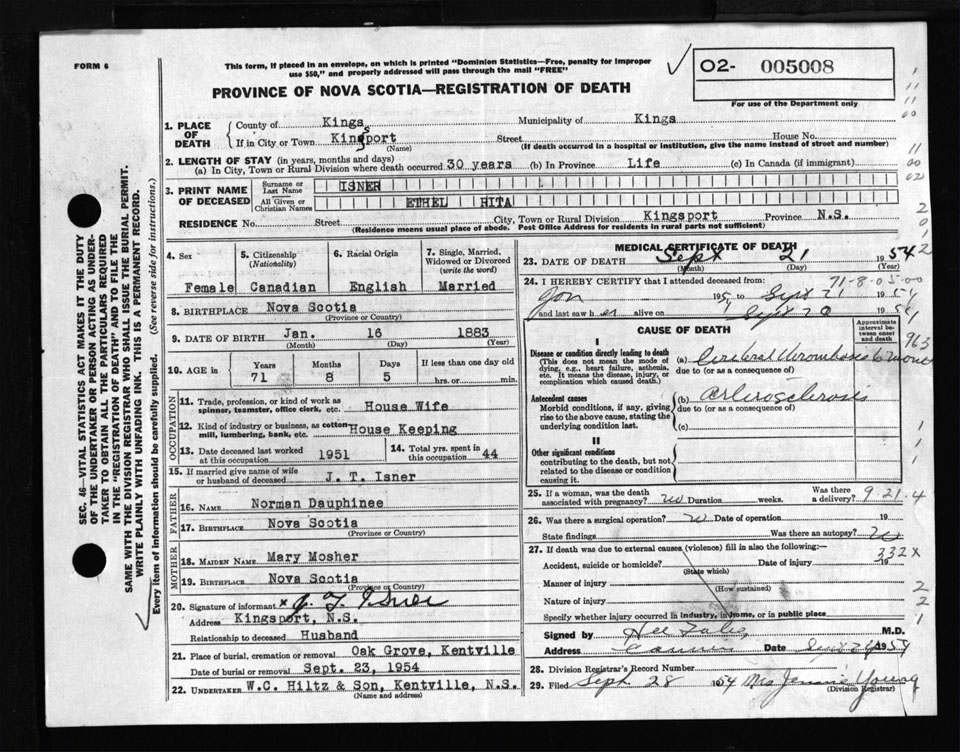 FORM 6
This form, if placed in an envelope, on which is printed "Dominion Statistics—Free, penalty for improper
use $50," and properly addressed will pass through the mail "FREE"
O2- 005008
For use of the Department only
PROVINCE OF NOVA SCOTIA—REGISTRATION OF DEATH
1. PLACE OF DEATH
County of Kings Municipality of Kings
If in City or Town Kingsport Street House No.
(Name) (If death occurred in a hospital or institution, give the name instead of street and number)
2. LENGTH OF STAY (in years, months and days)
(a) In City, Town or Rural Division where death occurred 30 years (b) In Province Life (c) In Canada (if immigrant)
3. PRINT NAME OF DECEASED
Surname or Last Name ISNER
All Given or Christian Names ETHEL RITA
RESIDENCE No. Street City, Town or Rural Division Kingsport Province N.S.
(Residence means usual place of abode. Post Office Address for residents in rural parts not sufficient)
4. Sex 5. Citizenship (Nationality) 6. Racial Origin 7. Single, Married, Widowed or Divorced (write the word)
Female Canadian English Married
8. BIRTHPLACE Nova Scotia
(Province or Country)
9. DATE OF BIRTH Jan. 16 1883
(Month) (Day) (Year)
10. AGE in Years Months Days If less than one day old
71 8 5 hrs. or min.
OCCUPATION
11. Trade, profession, or kind of work as
spinner, teamster, office clerk, etc. House Wife
12. Kind of industry or business, as cotton
mill, lumbering, bank, etc. House Keeping
13. Date deceased last worked at this occupation 1951 14. Total yrs. spent in this occupation 44
15. If married give name of wife
or husband of deceased J. T. Isner
FATHER
16. NAME Norman Dauphinee
17. BIRTHPLACE Nova Scotia
(Province or Country)
MOTHER
18. MAIDEN NAME Mary Mosher
19. BIRTHPLACE Nova Scotia
(Province or Country)
20. Signature of informant x J. T. Isner
Address Kingsport, N.S.
Relationship to deceased Husband
21. Place of burial, cremation or removal Oak Grove, Kentville
Date of burial or removal Sept. 23, 1954
22. UNDERTAKER W.C. Hiltz & Son, Kentville, N.S.
(Name and address)
MEDICAL CERTIFICATE OF DEATH
23. DATE OF DEATH Sept 21 1954
(Month) (Day) (Year)
71-8-05-00
24. I HEREBY CERTIFY that I attended deceased from:
Jan 195 to Sept 21 195
and last saw her alive on Sept 20 19
CAUSE OF DEATH
Approximate interval between onset and death
963
I
Disease or condition directly leading to death (a) Cerebral thrombosis 6 mont
(This does not mean the mode of dying, e.g., heart failure, asthenia, etc. It means the disease, injury, or complication which caused death.)
due to (or as a consequence of)
Antecedent causes (b) arteriosclerosis
Morbid conditions, if any, giving rise to the above cause, stating the underlying condition last.
due to (or as a consequence of)
(c)
II
Other significant conditions
contributing to the death, but not related to the disease or condition causing it.
25. If a woman, was the death associated with pregnancy? Duration weeks. Was there a delivery? 9-21-4
26. Was there a surgical operation? Date of operation 19
State findings Was there an autopsy?
27. If death was due to external causes (violence) fill in also the following:—
332X
Accident, suicide or homicide? Date of injury 19
(State which)
Manner of injury
(How sustained)
Nature of injury
Specify whether injury occurred in industry, in home, or in public place
Signed by M.D.
Address Date Sept 24 195
28. Division Registrar's Record Number
29. Filed Sept 28 1954 Mrs Jennie Young
(Division Registrar)
SEC. 46—VITAL STATISTICS ACT MAKES IT THE DUTY
OF THE UNDERTAKER OR PERSON ACTING AS UNDER-
TAKER TO OBTAIN ALL THE PARTICULARS REQUIRED
IN THE "REGISTRATION OF DEATH" AND TO FILE THE
SAME WITH THE DIVISION REGISTRAR WHO SHALL ISSUE THE BURIAL PERMIT.
WRITE PLAINLY WITH UNFADING INK. THIS IS A PERMANENT RECORD.
Every item of information should be carefully supplied. (See reverse side for instructions.)